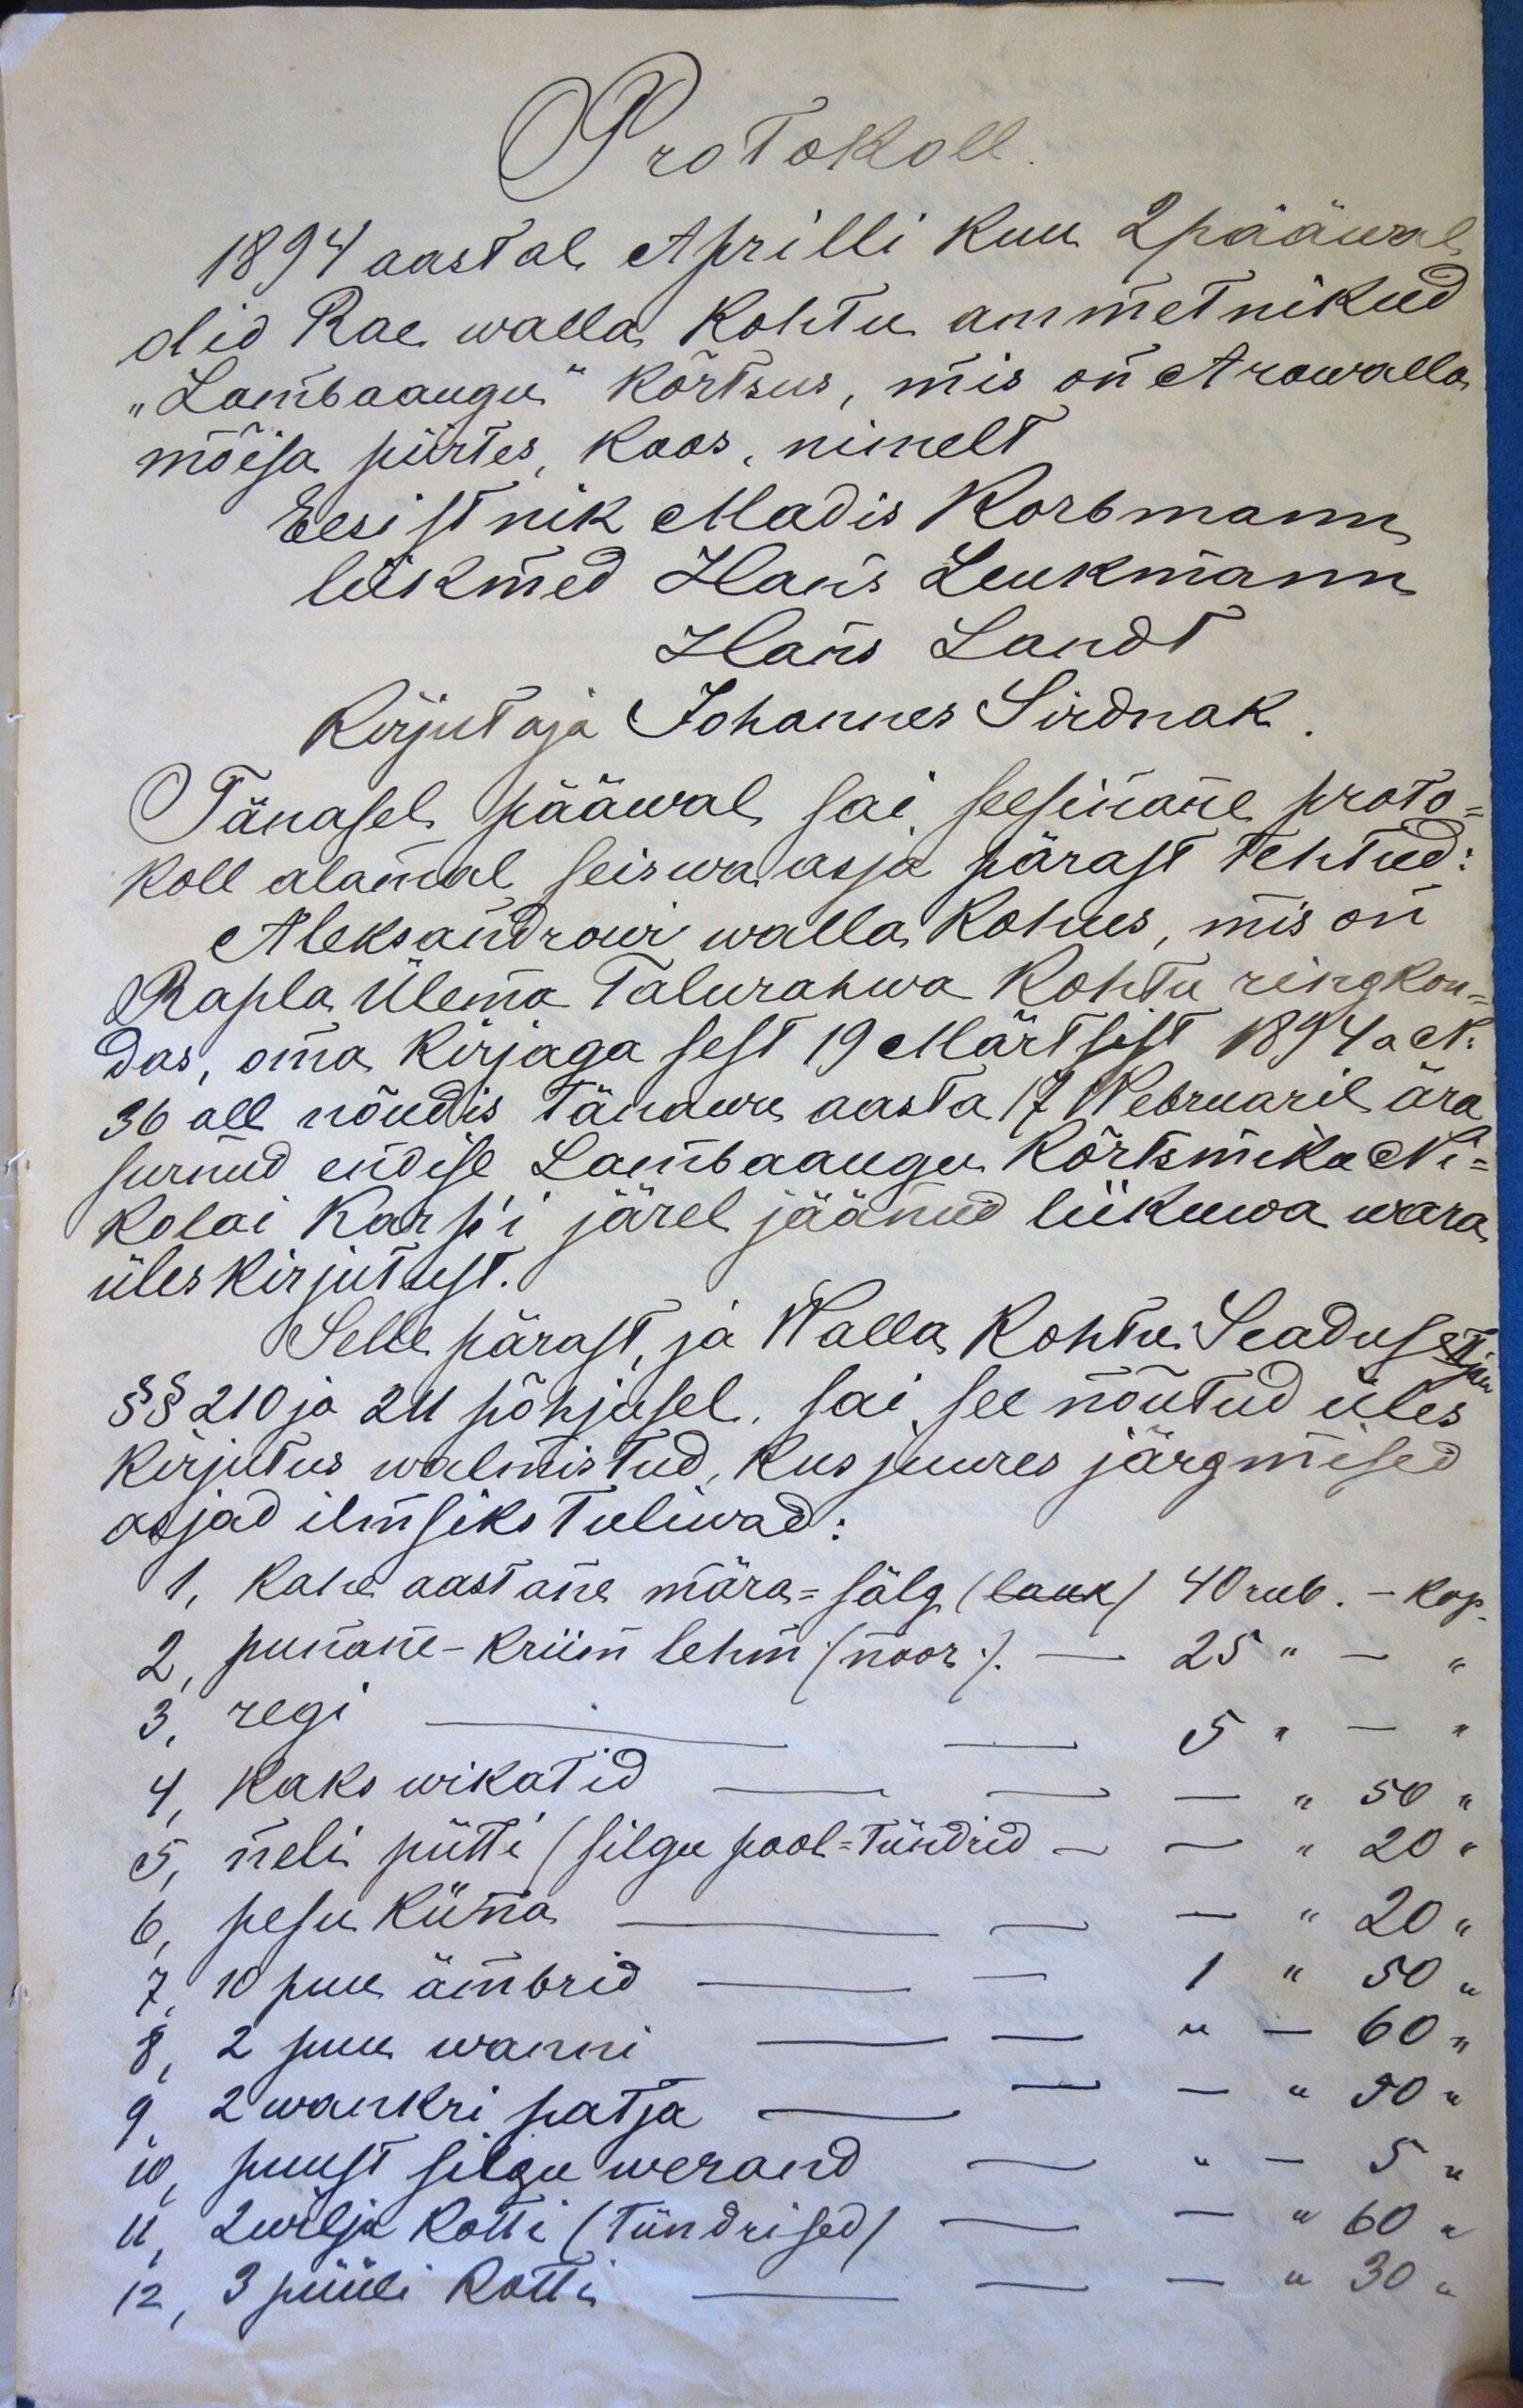 Protokoll.
1894 aastal Aprilli kuu 2 pääwal
olid Rae walla kohtu ammetnikud
„Lambaaugu" kõrtsus, mis on Arawalla
mõisa piirtes, koos, nimelt
Eesistnik Madis Korbmann
liikmed Hans Leukmann
Hans Landt
Kirjutaja Johannes Sirdnak.
Tänasel pääwal sai seesinane proto=
koll alamal seiswa asja pärast tehtud:
Aleksandrowi walla kohus, mis on
Rapla Ülema Talurahwa Kohtu ringkon=
das, oma kirjaga sest 19 Märtsist 1894 a N:
36 all nõudis tänawu aasta 17 Webruaril ära
surnud endise Lambaaugu kõrtsmiku Ni=
kolai Karp'i järel jäänud liikuwa wara
üleskirjutust.
Selle pärast, ja Walla Kohtu Seaduse
§§ 210 ja 211 põhjusel, sai see nõutud üles
kirjutus walmistud, kus juures järgmised
asjad ilmsiks tuliwad:
1, kahe aastane mära=sälg (lauk) 40 rub. - kop.
2, punane-kriim lehm (:noor:). — 25 " — "
3, regi — — 5 " — "
4, kaks wikatid — — — " 50 "
5, neli pütti (silgu pool=tündrid — — " 20 "
6, pesu küna — — — " 20 "
7, 10 puu ämbrid — — 1 " 50 "
8, 2 puu wanni — — " — 60 "
9, 2 wankri patja — — — " 50 "
10, puust silgu werand — " — 5 "
11, 2 wilja kotti (tündrised) — — " 60 "
12, 3 püüli kotti — — — " 30 "